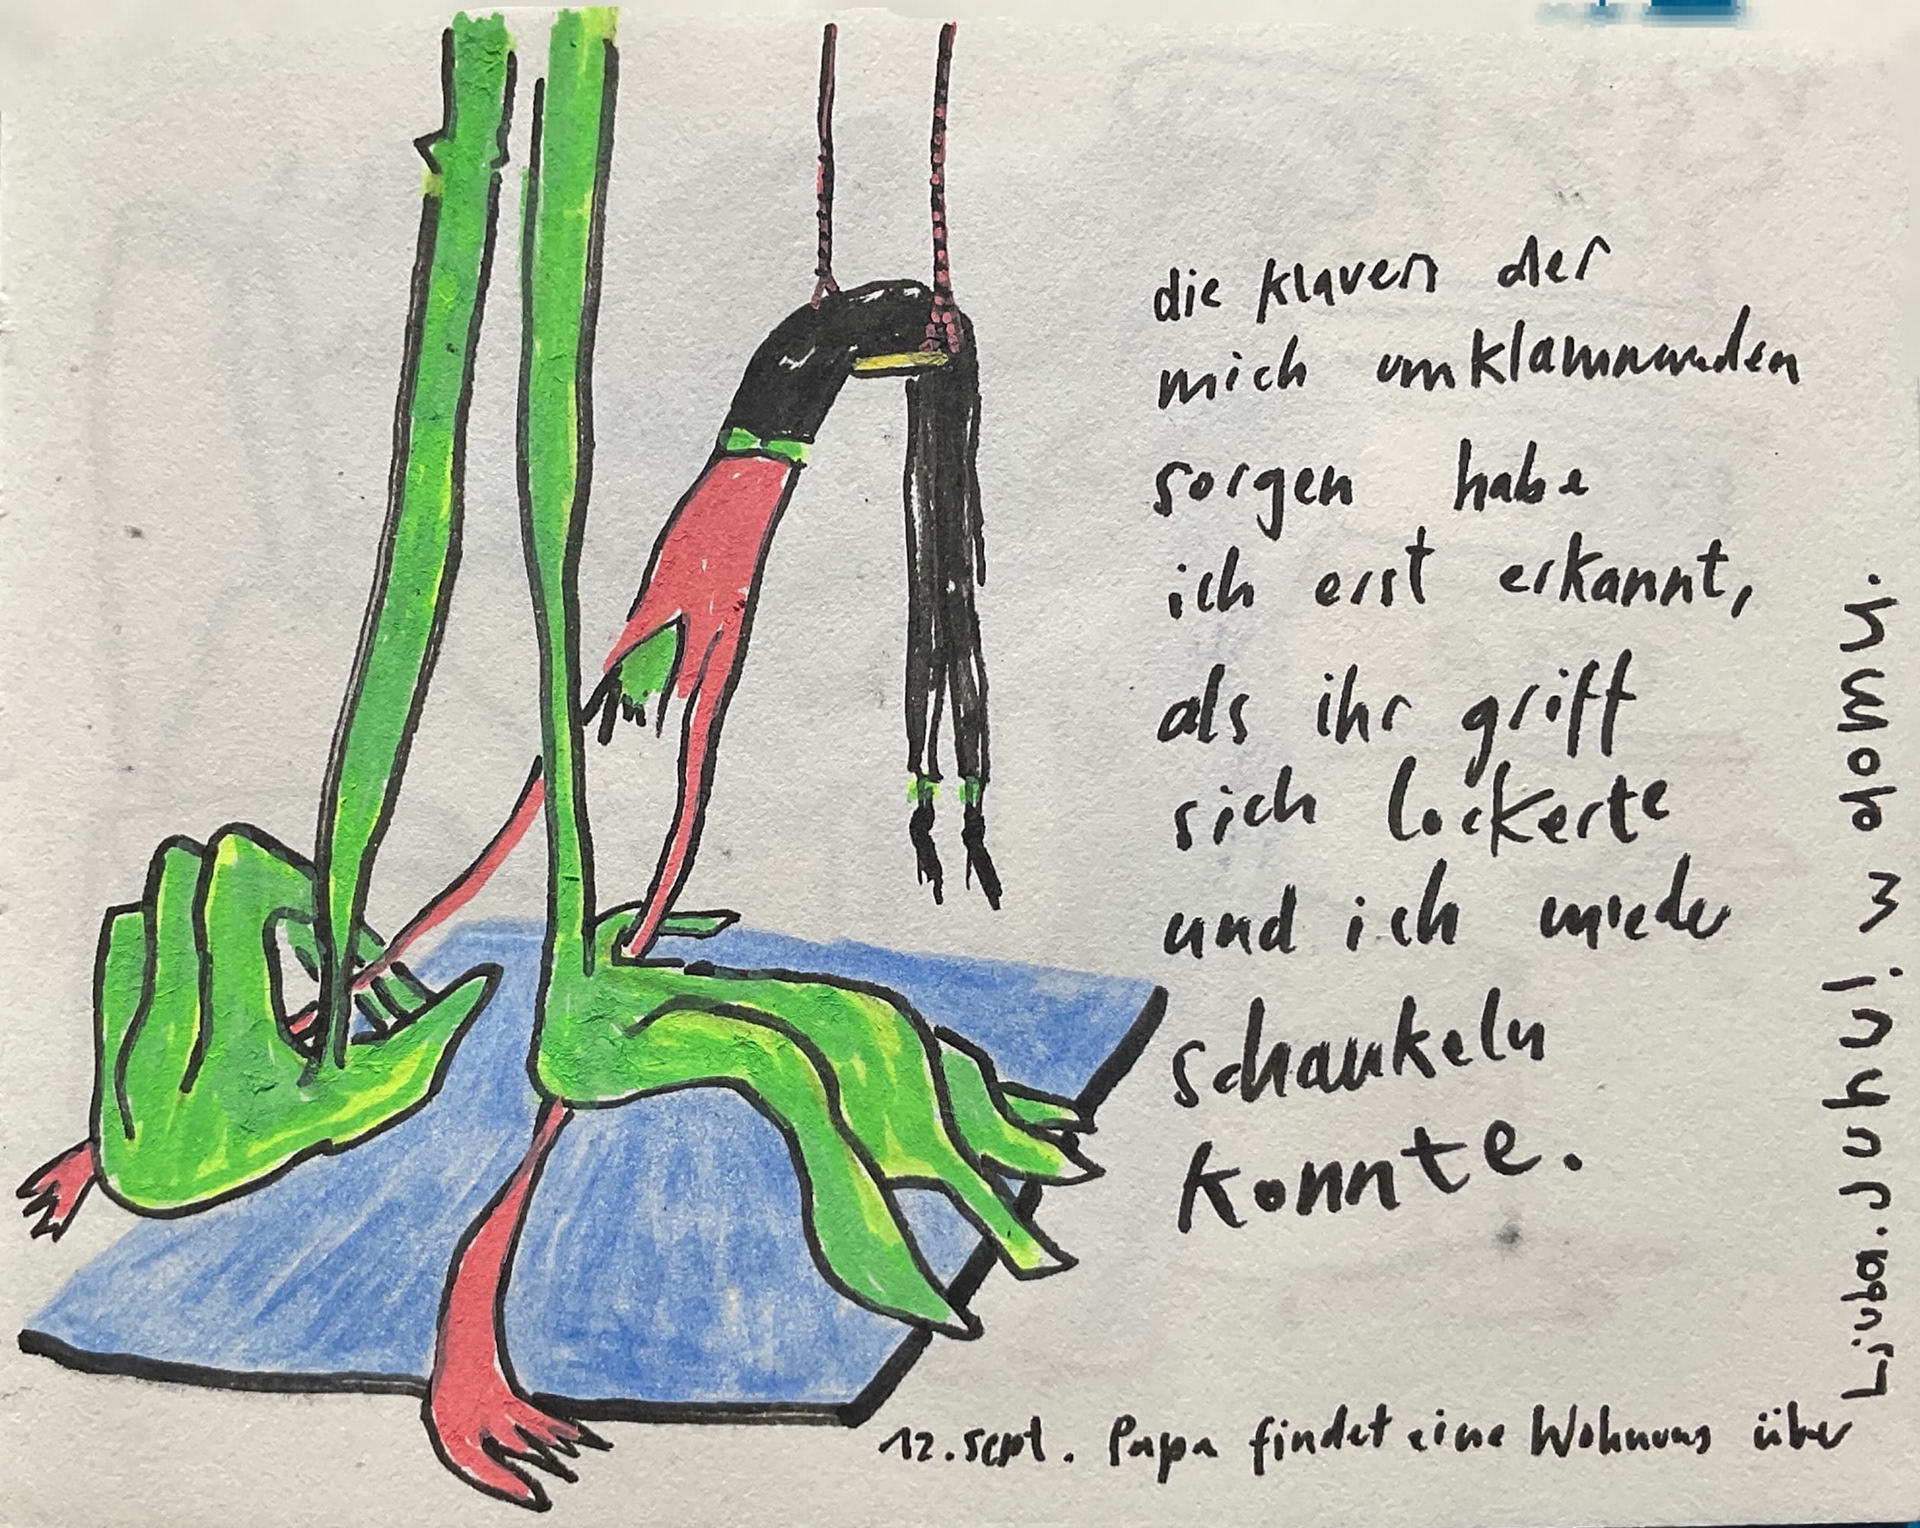 die klauen der
mich umklammernden
sorgen habe
ich erst erkannt,
als ihr griff
sich lockerte
und ich wieder
schaukeln
konnte.
12. Sept. Papa findet eine Wohnung über
Ljuba. Juhu! w domu.